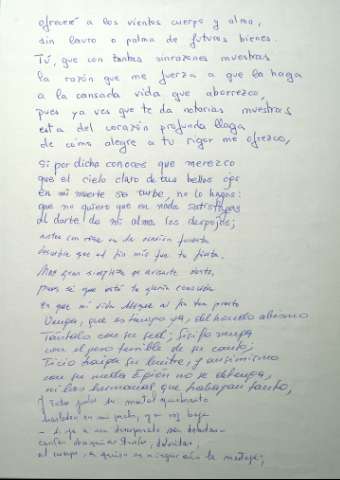 ofreceré a los vientos cuerpo y alma,
sin lauro o palma de futuros bienes.
Tú, que con tantas sinrazones muestras
la razón que me fuerza a que la haga
a la cansada vida que aborrezco,
pues ya ves que te da notorias muestras
esta del corazón profunda llaga
de como alegre a tu rigor me ofrezco,
si por dicha conoces que merezco
que el cielo claro de tus bellos ojos
en mi muerte se turbe, no lo hagas:
que no quiero que en nada satisfagas
al darte de mi alma los despojos;
antes con risa en la ocasión funesta
descubre que el fin mío fue tu fiesta.
Mas gran simpleza es avisarte desto,
pues sé que está tu gloria conocida
en que mi vida llegue al fin tan presto
Venga, que es tiempo ya, del hondo abismo
Tántalo con su sed; Sísifo venga
con el peso terrible de su canto;
Ticio traiga su buitre, y ansimismo
con su rueda Egión no se detenga,
ni las hermanas que trabajan tanto,
y todos juntos su mortal quebranto
trasladen en mi pecho, y en voz baja
- si ya a un desesperado son debidas -
canten obsequias tristes, doloridas,
al cuerpo, a quien se niegue aún la mortaja;